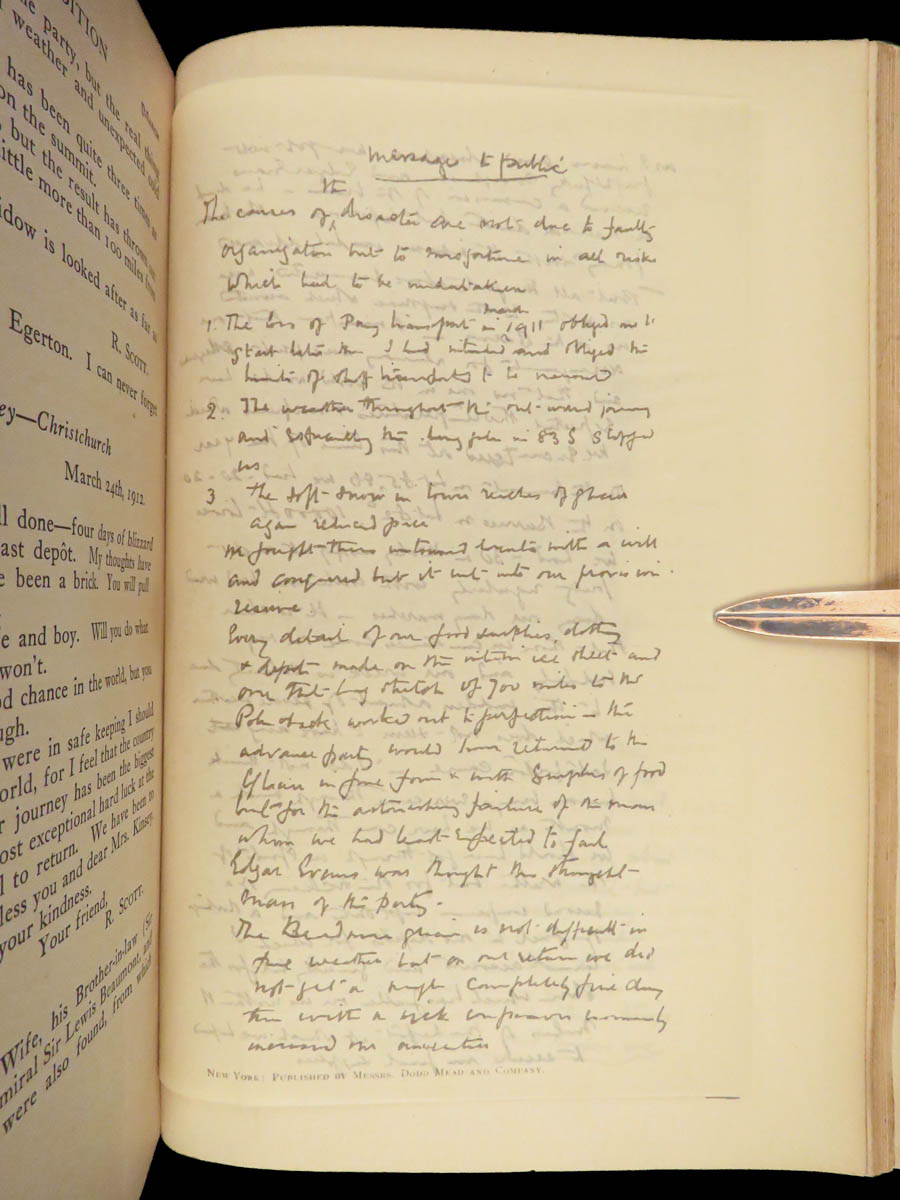 DITION
e party, but the real thing
weather and unexpected cold
has been quite three times as
on the summit.
but the result has thrown out
ittle more than 100 miles from
idow is looked after as far as
R. Scott.
Egerton. I can never forget
ey—Christchurch
March 24th, 1912.
ll done—four days of blizzard
ast depôt. My thoughts have
e been a brick. You will pull
e and boy. Will you do what
won't.
od chance in the world, but you
ugh.
were in safe keeping I should
orld, for I feel that the country
r journey has been the biggest
ost exceptional hard luck at the
l to return. We have been to
less you and dear Mrs. Kinsey.
your kindness.
Your friend,
R. Scott.
Wife, his Brother-in-law (Sir
miral Sir Lewis Beaumont, and
were also found, from which
Message to public
the
The causes of disaster are not due to faulty
organisation but to misfortune in all risks
which had to be undertaken
1. The loss of Pony transport in March 1911 obliged me to
start later than I had intended and obliged the
limits of stuff transported to be narrowed
2. The weather throughout the outward journey
and especially the long gale in 83 S stopped
us
3 The soft snow in lower reaches of glacier
again reduced pace
We fought these untoward events with a will
and conquered but it cut into our provision
reserve
Every detail of our food supplies, clothing
& depots made on the interior ice sheet and
over that long stretch of 700 miles to the
Pole & back, worked out to perfection - the
advance party would have returned to the
Glacier in fine form & with surplus of food
but for the astonishing failure of the man
whom we had least expected to fail
Edgar Evans was thought the strongest
man of the party -
The Beardmore glacier is not difficult in
fine weather but on our return we did
not get a single completely fine day
this with a sick companion enormously
increased our anxieties
NEW YORK: PUBLISHED BY MESSRS. DODD MEAD AND COMPANY.